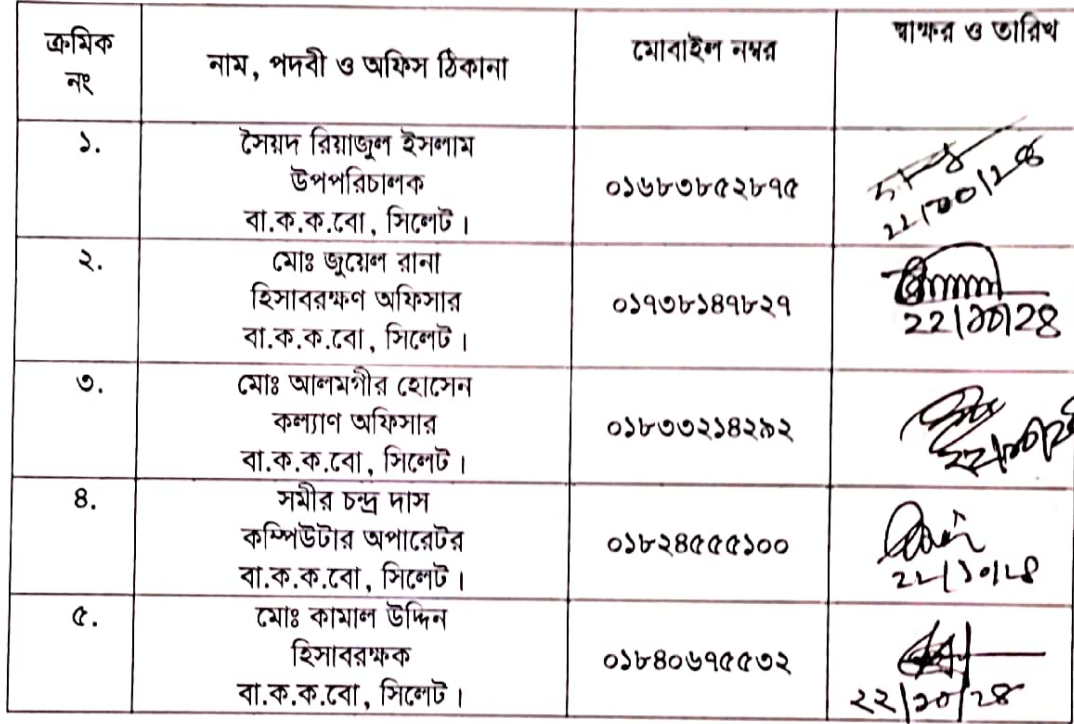 ক্রমিক নং
নাম, পদবী ও অফিস ঠিকানা
মোবাইল নম্বর
স্বাক্ষর ও তারিখ
১.
সৈয়দ রিয়াজুল ইসলাম
উপপরিচালক
বা.ক.ক.বো, সিলেট।
০১৬৮৩৮৫২৮৭৫
২২/১০/২৪
২.
মোঃ জুয়েল রানা
হিসাবরক্ষণ অফিসার
বা.ক.ক.বো, সিলেট।
০১৭৩৮১৪৭৮২৭
২২/১০/২৪
৩.
মোঃ আলমগীর হোসেন
কল্যাণ অফিসার
বা.ক.ক.বো, সিলেট।
০১৮৩৩২১৪২৯২
২২/১০/২৪
৪.
সমীর চন্দ্র দাস
কম্পিউটার অপারেটর
বা.ক.ক.বো, সিলেট।
০১৮২৪৫৫৫১০০
২২/১০/২৪
৫.
মোঃ কামাল উদ্দিন
হিসাবরক্ষক
বা.ক.ক.বো, সিলেট।
০১৮৪০৬৭৫৫৩২
২২/১০/২৪